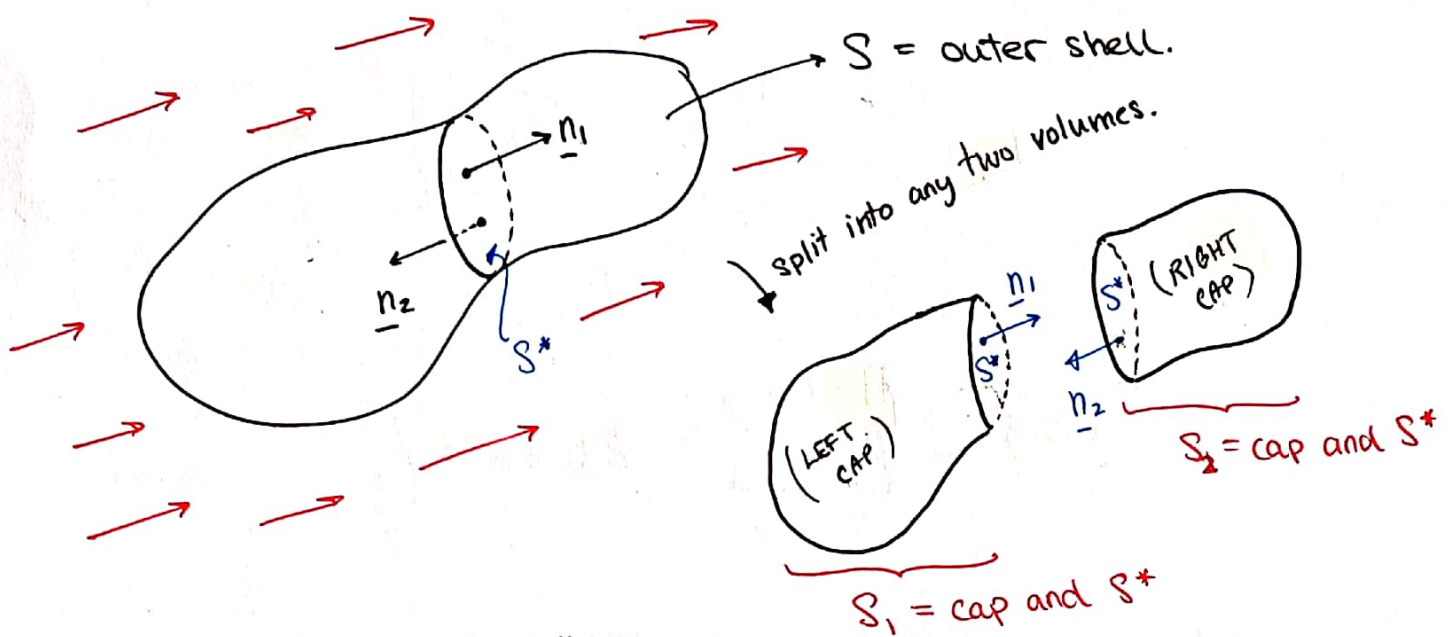 S = outer shell.
n1
n2
S*
split into any two volumes.
n1
S*
n2
S*
(RIGHT
CAP)
(LEFT
CAP)
S2 = cap and S*
S1 = cap and S*